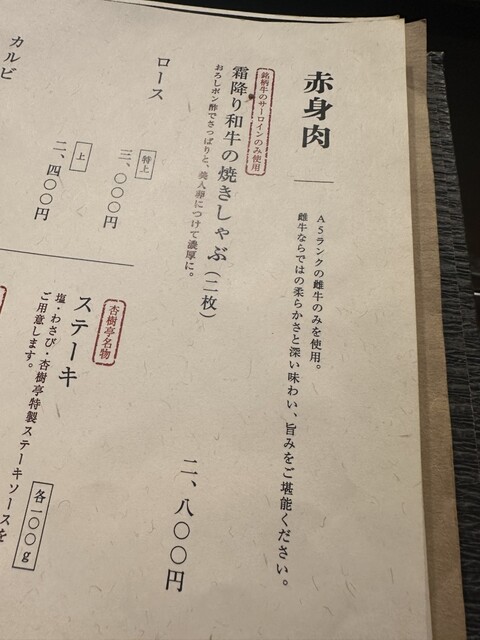 赤身肉
A5ランクの雌牛のみを使用。
雌牛ならではの柔らかさと深い味わい、旨みをご堪能ください。
銘柄牛のサーロインのみ使用
霜降り和牛の焼きしゃぶ（二枚）
二、八〇〇円
おろしポン酢でさっぱりと、美人卵につけて濃厚に。
ロース
特上
三、〇〇〇円
上
二、四〇〇円
カルビ
杏樹亭名物
ステーキ
各一〇〇g
塩・わさび・杏樹亭特製ステーキソースを
ご用意します。